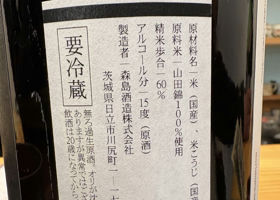 原材料名｜米(国産)、米こうじ(国
原料米｜山田錦100%使用
精米歩合｜60%
アルコール分｜15度(原酒)
製造者｜森島酒造株式会社
茨城県日立市川尻町一｜一
要冷蔵
無ろ過生原酒、オリが
ありますが異常では
飲酒は20歳になってから